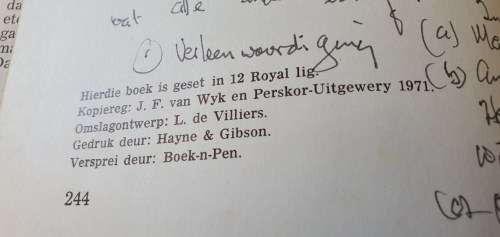 wat alle
(i) Verteenwoordiging
(a)
(b)
Hierdie boek is geset in 12 Royal lig.
Kopiereg: J. F. van Wyk en Perskor-Uitgewery 1971.
Omslagontwerp: L. de Villiers.
Gedruk deur: Hayne & Gibson.
Versprei deur: Boek-n-Pen.
244